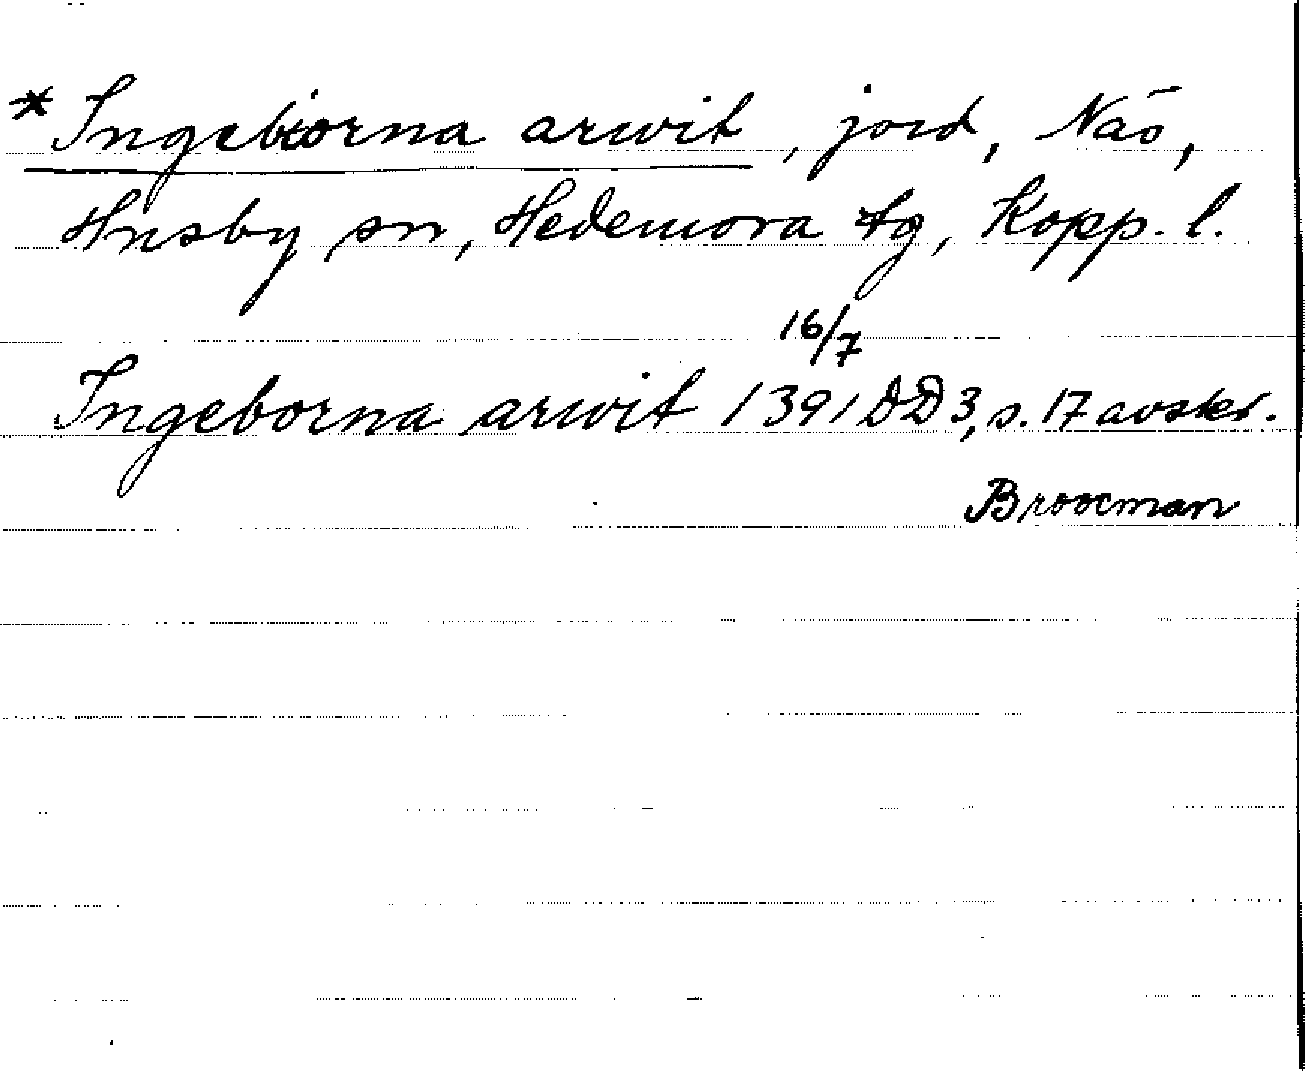 *Ingebiorna arwit, jord, Näs,
Husby sn, Hedemora tg, Kopp. l.
16/7
Ingeborna arwit 1391 DD3, s. 17 avskr.
Broocman